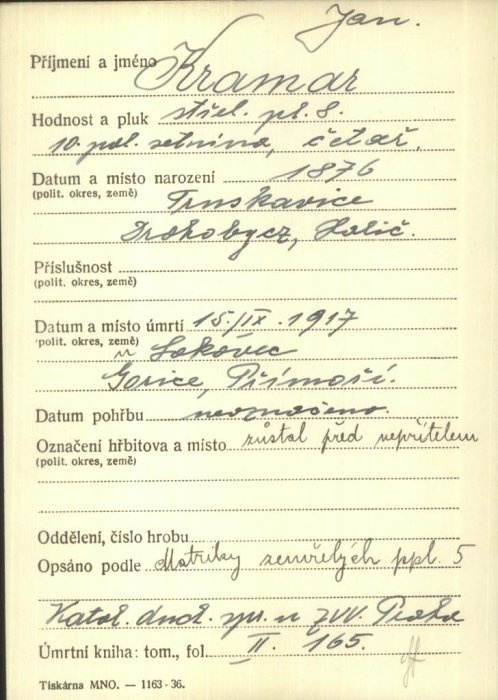 Jan.
Příjmení a jméno Kramar
Hodnost a pluk střel. pl. 8.
10. pol. setnina, četař.
Datum a místo narození 1876
(polit. okres, země) Truskavice
Drohobycz, Halič.
Příslušnost
(polit. okres, země)
Datum a místo úmrtí 15./IX. 1917
(polit. okres, země) u Lokovec
Gorice, Přímoří.
Datum pohřbu neoznačeno.
Označení hřbitova a místo zůstal před nepřítelem
(polit. okres, země)
Oddělení, číslo hrobu
Opsáno podle Matriky zemřelých ppl. 5
Katol. duch. spr. u ZVV. Praha
Úmrtní kniha: tom., fol. II. 165.
Tiskárna MNO. — 1163-36.